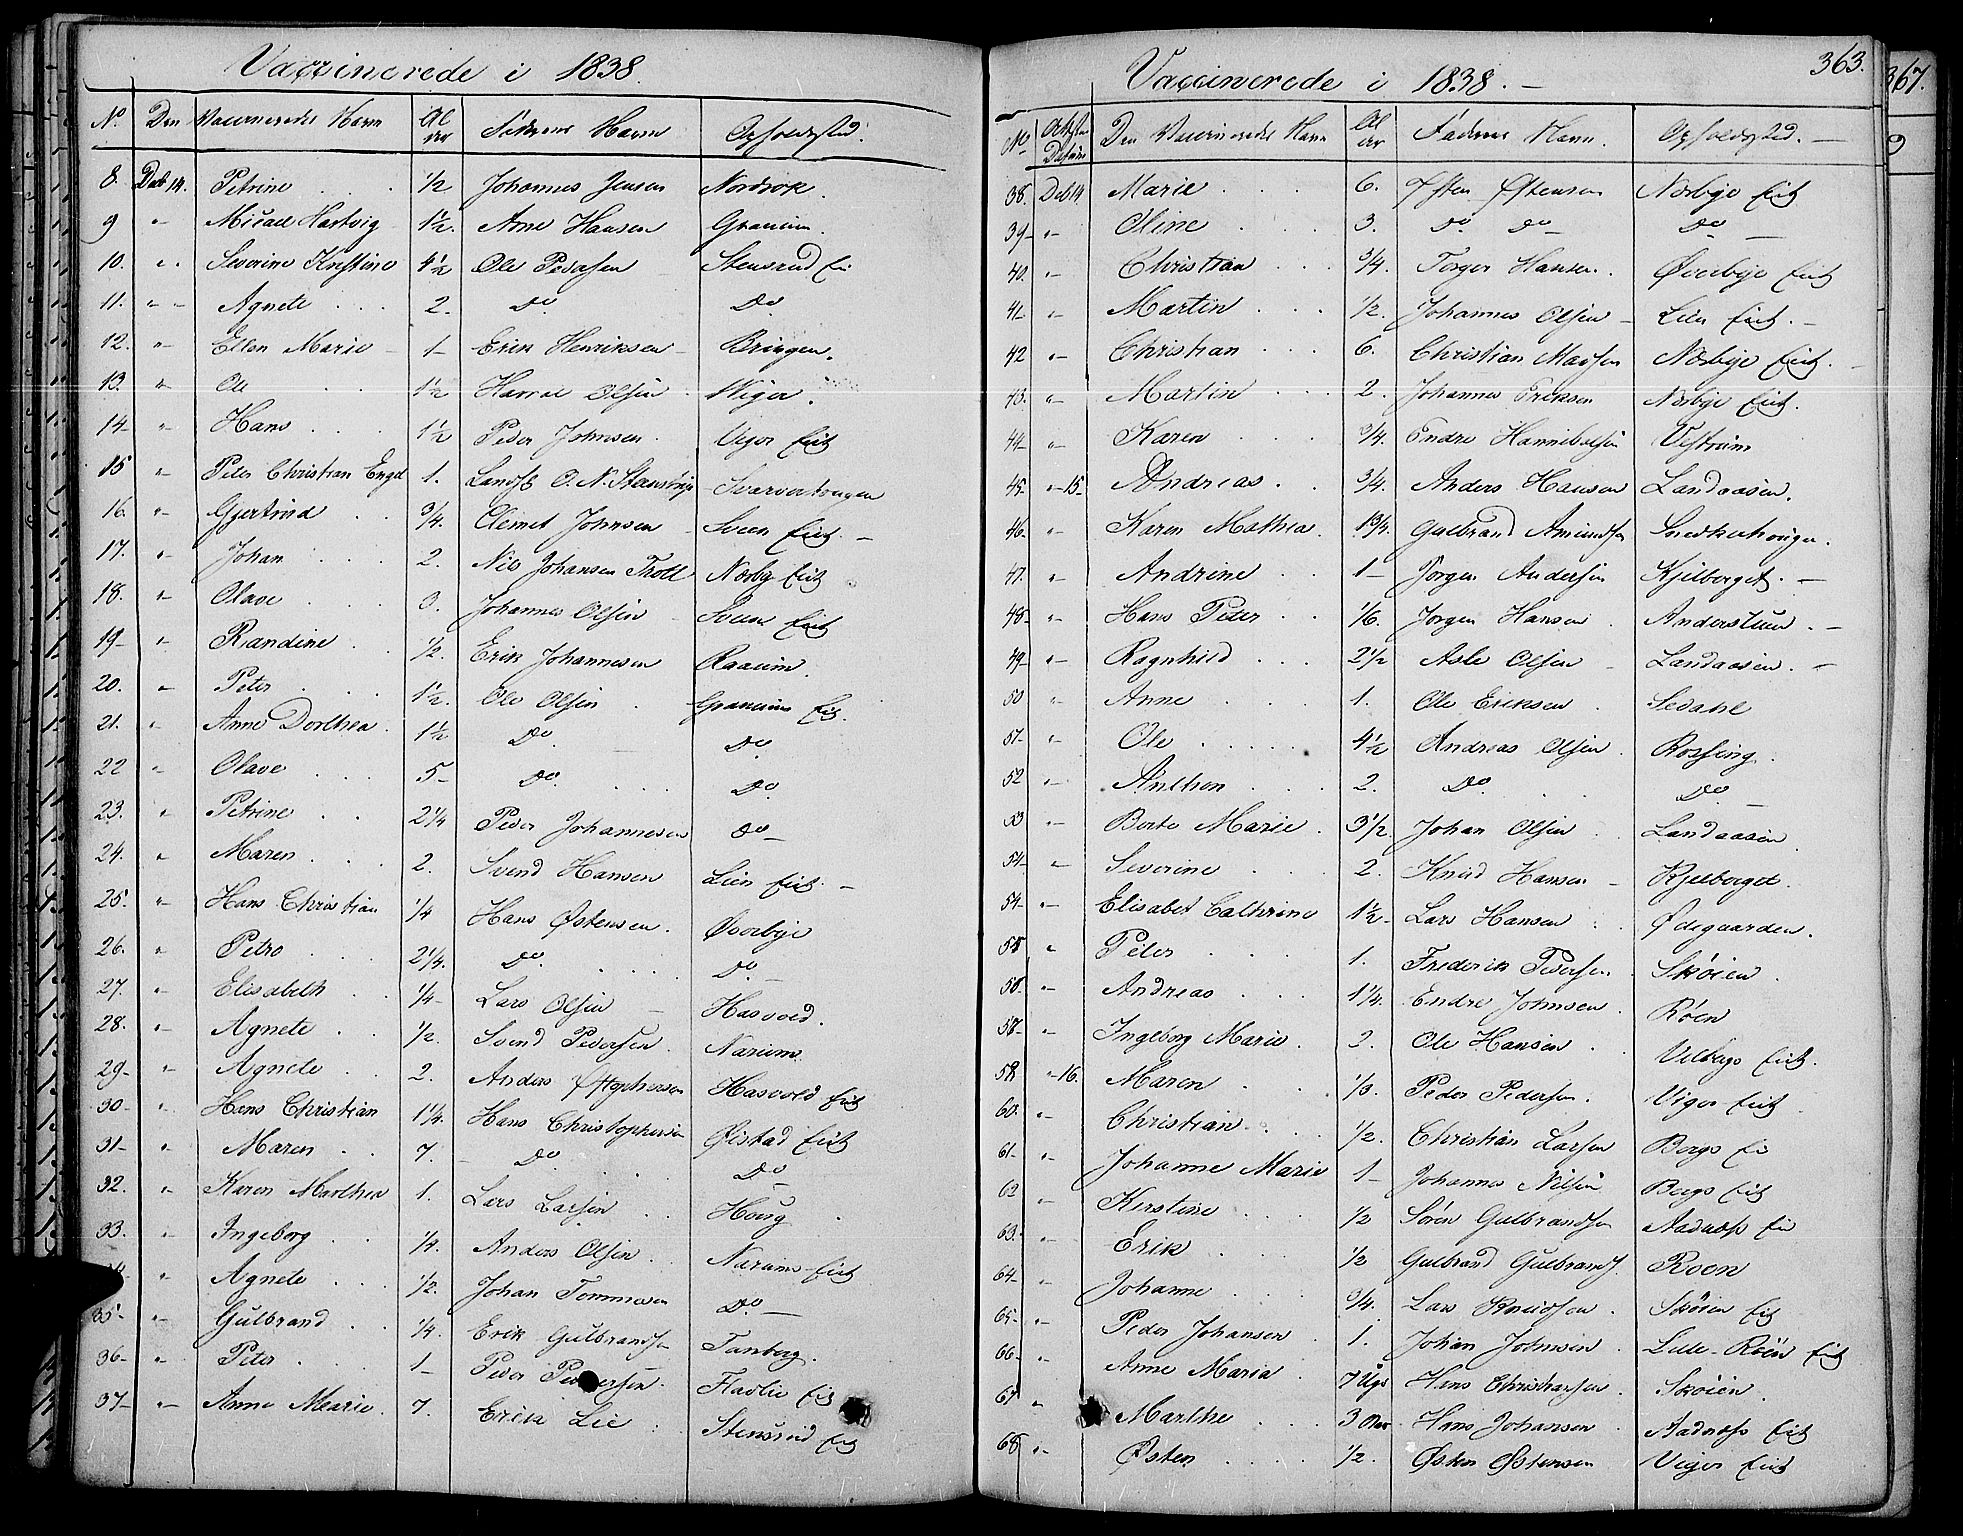 Vaccinerede i 1838.
No. Den Vaccineredes Navn Alder Faderens Navn Opholdssted.
8. Deb 14. Petrine 1/2 Johannes Jensen Nordrok.
9 " Micael Hartvig 1 1/2. Arne Hansen Granum.
10. " Severine Kristine 4 1/2 Ole Pedersen Stensrud
11. " Agnete 2. Do. Do.
12. " Ellen Marie 1 - Erik Henriksen Bringen.
13. " Ole 1 1/2 Olsen
14 " Hans 1 1/2 Peder Johnsen Viger Eiet
15 " Peter Christian Engel 1. O. N.
16. " Gjertrud 3/4. Clemet Johnsen Sveen Eiet.
17. " Johan 2. Nils Johansen Troll Nærby Eiet
18. " Olave 3. Johannes Olsen Sveen Eiet
19 - " Randine 1/2. Erik Johannesen Raaum.
20. " Peter 1 1/2. Ole Olsen Granum Eit.
21. " Anne Dorthea. 1 1/2 Do Do
22 " Olave 5 - Do. Do.
23. " Petrine 2 1/4 Peder Johannesen Do -
24. " Maren 2. Svend Hansen Lien Eiet. -
25. " Hans Christian 1/4 Hans Østensen. Øverbye
26. " Petro 2 1/4. Do. Do -
27. " Elisabeth 1/4 - Lars Olsen Hasvold.
28. " Agnete 1/2. Svend Pedersen. Narum.
29 - " Agnete 2. Anders Hasvold Eiet
30 - " Hans Christian 1 1/4. Hans Christophersen Ølstad Eiet
31 - " Maren 7. Do Do
32. " Karen Marthea 1. Lars Larsen Houg
33. " Ingeborg 1/4. Anders Olsen Narum Eiet
" Agnete 1/2. Johan Tommesen Do. -
35 - " Gulbrand 1/4. Erik Gulbrandsen Tanberg.
36 - " Peter 1 - Peder Pedersen. Fladlie Eit
37 - " Anne Marie. 7. Erik Lie Stensrud Eit
363.
367.
Vaccinerede i 1838. -
No. Den Vaccineredes Navn Alder Faderens Navn. Opholdssted. -
38. Deb 14 Marie 6. Østen Østensen Nærbye Eiet
39 - " Oline 3. Do Do - Do -
40. " Christian 3/4. Torger Hansen. Øverbye Eiet
41 - " Martin 1/2. Johannes Olsen - Lien Eiet. -
42 " Christian 6. Christian Madsen Nærbye Eiet.
43. " Martin 2. Johannes Eriksen Nærbye Eiet.
44 - " Karen 3/4. Endre Hannibalsen Vestrum
45 - " 15 - Andreas. 3/4. Anders Hansen Landaasen.
46. " Karen Mathea. 1 3/4. Gulbrand Amundsen Snedkerhougen.
47. " Andrine 1 - Jørgen Andersen Kjelberget. -
48 - " Hans Peter 1/6. Jørgen Hansen Anderstuen. -
49 - " Ragnhild 2 1/2 Asle Olsen - Landaasen. -
50 " Anne 1. Ole Eriksen Sedahl
51 - " Ole 4 1/2 Andreas Olsen. Røssing.
52 " Anthon 2. Do. Do. -
53 " Berte Marie. 3 1/2. Johan Olsen Landaasen
54 - " Severine 2. Knud Hansen - Kjelberget.
54 - " Elisabet Cathrine 1 1/2 - Lars Hansen Ødegaarden.
" Peter 1. Frederik Pedersen. Skøien.
" Andreas 1 1/4. Endre Johnsen. Røen
" Ingeborg Marie. 2. Ole Hansen Eiet.
" 16. Maren 1/3. Peder Pedersen. Viger Eiet.
60. " Christian 1/2. Christian Larsen Bergs
61 - " Johanne Marie 1 - Johannes Nilsen Bergs Eiet
62 " Kerstine 1/2 Søren Gulbrandsen Aadnæs
63. " Erik 1/2 Gulbrand Gulbrands. Roen
64 - " Johanne 3/4. Lars Knudsen. Skøien Eit
65 - " Peder Johansen 1. Johan Johnsen Lille-Røen Eit
66 - " Anne Maria. 7 Ugr Hans Christiansen. Skøien.
67 " Marthe 3 Hans Johansen Aadnæs Eit
68 " Østen 1/2. Østen Østensen Viger Eiet